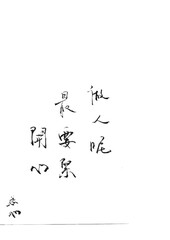 做人呢
最要緊
開心